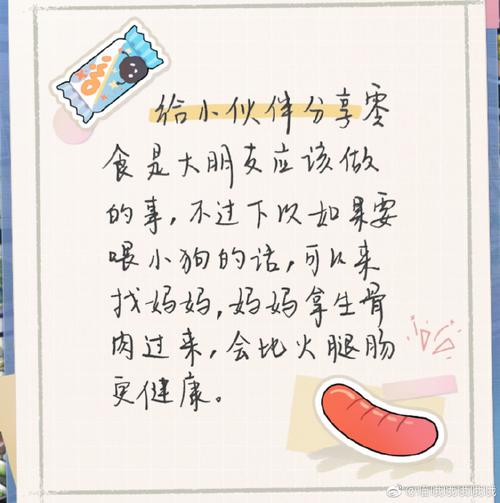 给小伙伴分享零
食是大朋友应该做
的事，不过下以如果要
喂小狗的话，可以来
找妈妈，妈妈拿生骨
肉过来，会地火腿肠
更健康。